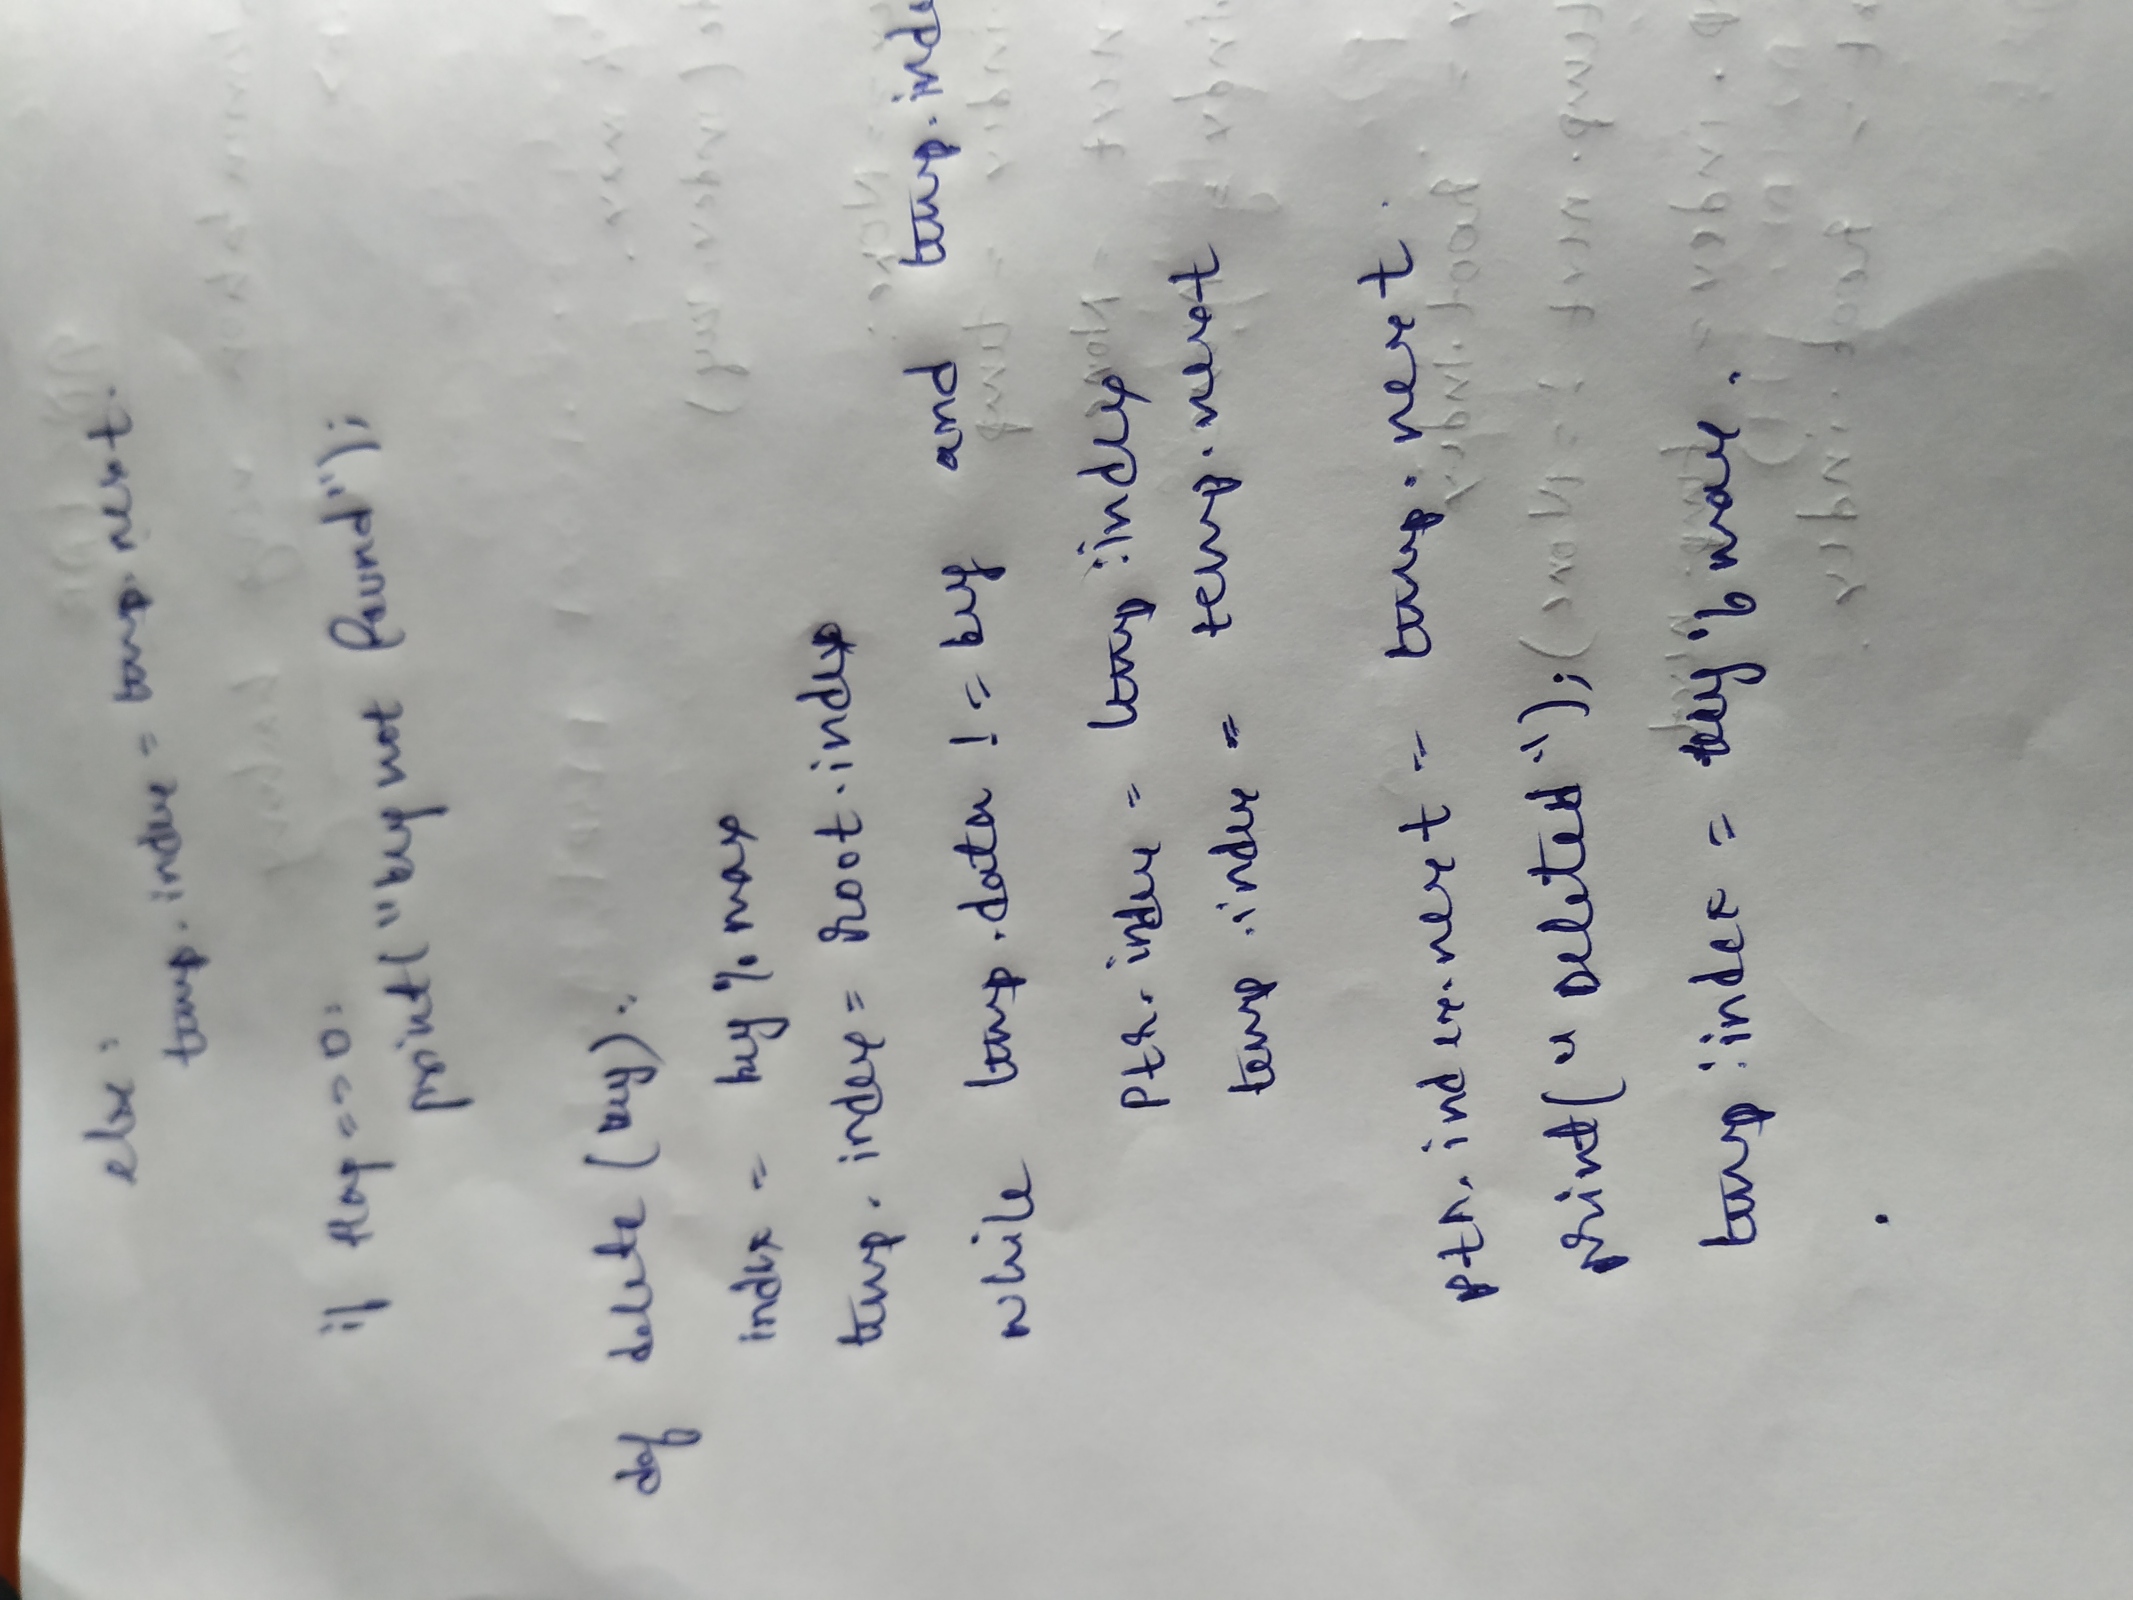 else:
temp.index = temp.next.
if flag==0:
print("key not found");
def delete (key):
index = key % max
temp.index = root.index
while temp.data != key and temp.inde
ptr.index = temp.index
temp.index = temp.next
ptr.index.next = temp.next.
print("Deleted");
temp.index = key % max.